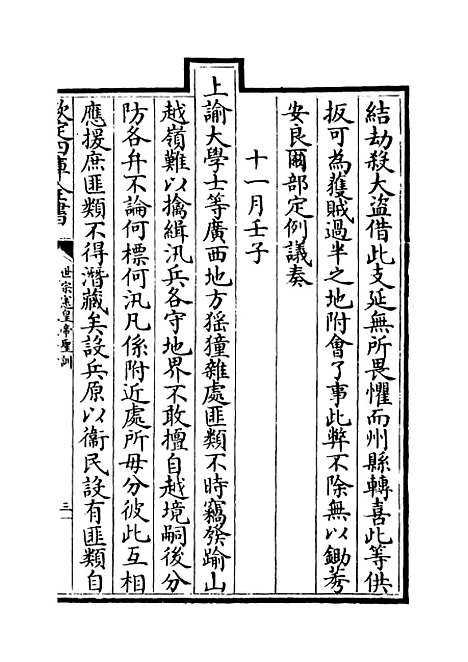 結劫殺大盜借此支延無所畏懼而州縣轉喜此等供
扳可為獲賊過半之地附會了事此弊不除無以鋤莠
安良爾部定例議奏
十一月壬子
上諭大學士等廣西地方猺獞雜處匪類不時竊發踰山
越嶺難以擒緝汛兵各守地界不敢擅自越境嗣後分
防各弁不論何標何汛凡係附近處所毋分彼此互相
應援庶匪類不得潛藏矣設兵原以衞民設有匪類自
欽定四庫全書
世宗憲皇帝聖訓